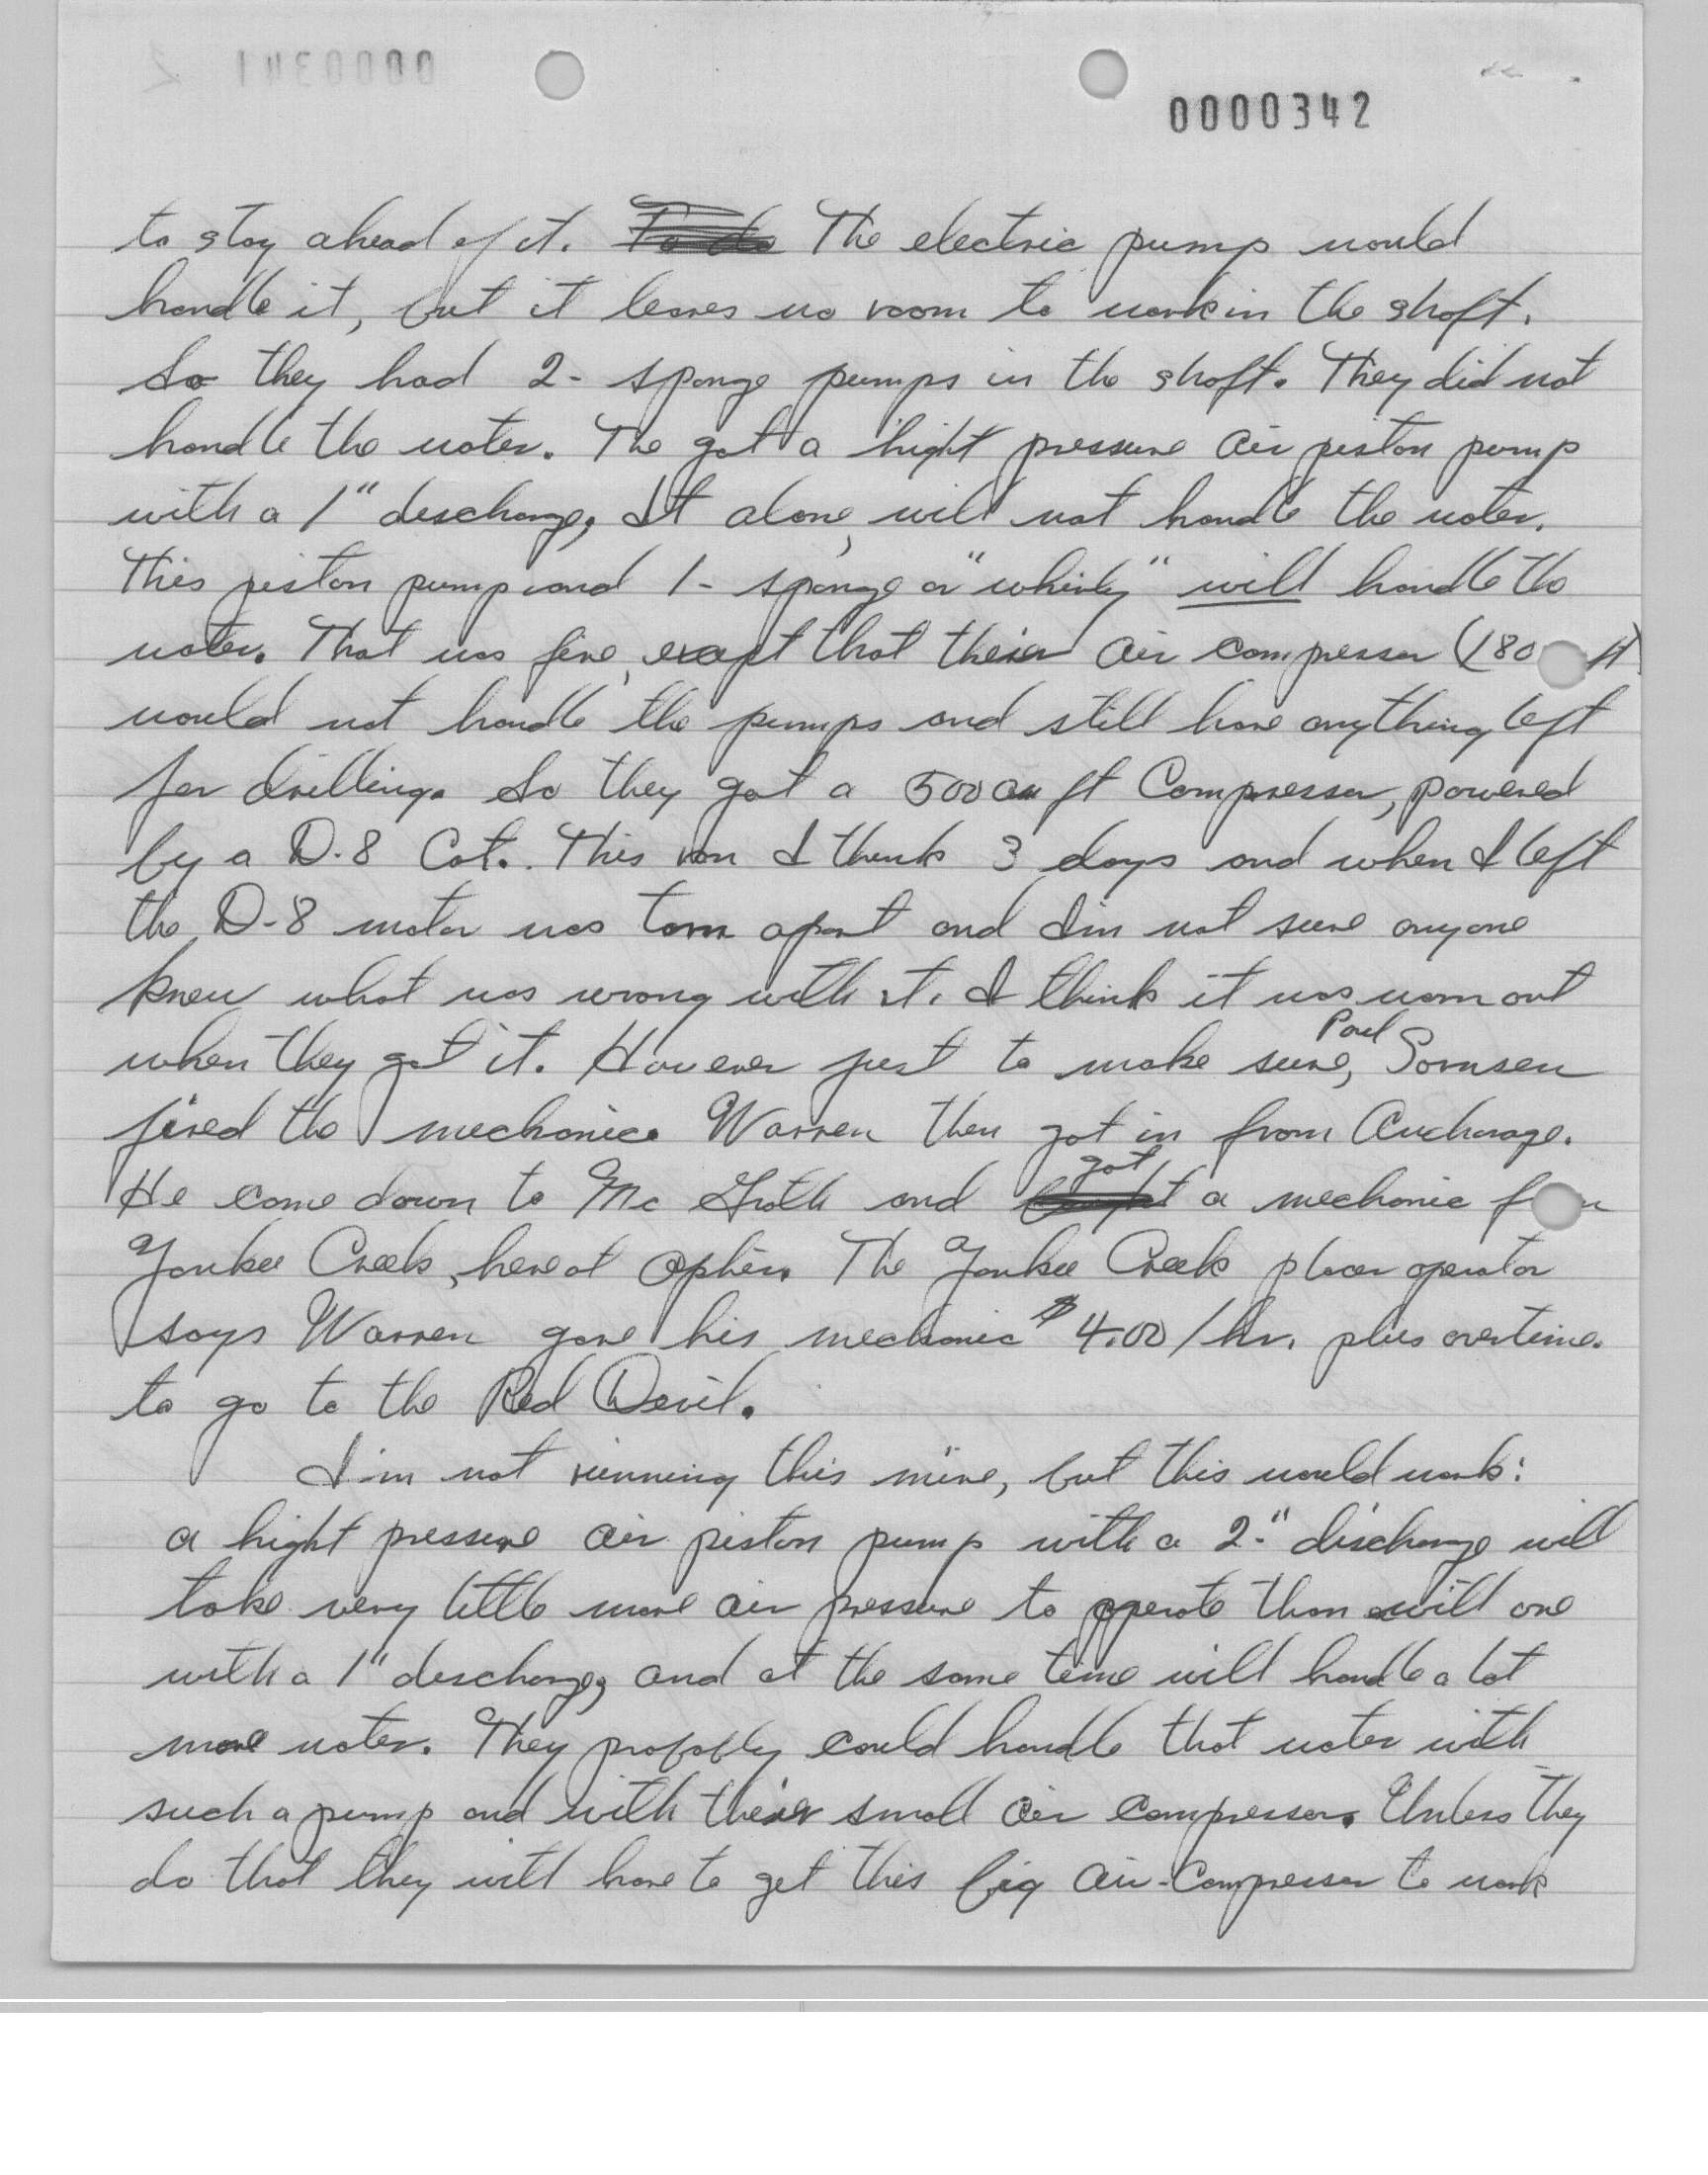 0000342
to stay ahead of it. The electric pump would
handle it, but it leaves no room to work in the shaft.
So they had 2- sponge pumps in the shaft. They did not
handle the water. The got a hight pressure air piston pump
with a 1" discharge, It alone, will not handle the water.
This piston pump and 1- sponge or "whirly" will handle the
water. That was fine, except that their air compressor (180 ft)
would not handle the pumps and still have anything left
for drilling. So they got a 500 cu ft Compressor, powered
by a D-8 Cat. This ran I think 3 days and when I left
the D-8 motor was torn apart and I'm not sure anyone
knew what was wrong with it. I think it was worn out
when they got it. However just to make sure, Paul Sornsen
fired the mechanic. Warren then got in from Anchorage.
He come down to Mc Grath and got a mechanic
Yankee Creek, here at Ophir. The Yankee Creek placer operator
says Warren gave his mechanic $4.00/hr. plus overtime.
to go to the Red Devil.
I'm not running this mine, but this would work:
a hight pressure air piston pump with a 2-" discharge will
take very little more air pressure to operate than will one
with a 1" discharge, and at the same time will handle a lot
more water. They probably could handle that water with
such a pump and with their small air compressor. Unless they
do that they will have to get this big air-Compressor to work